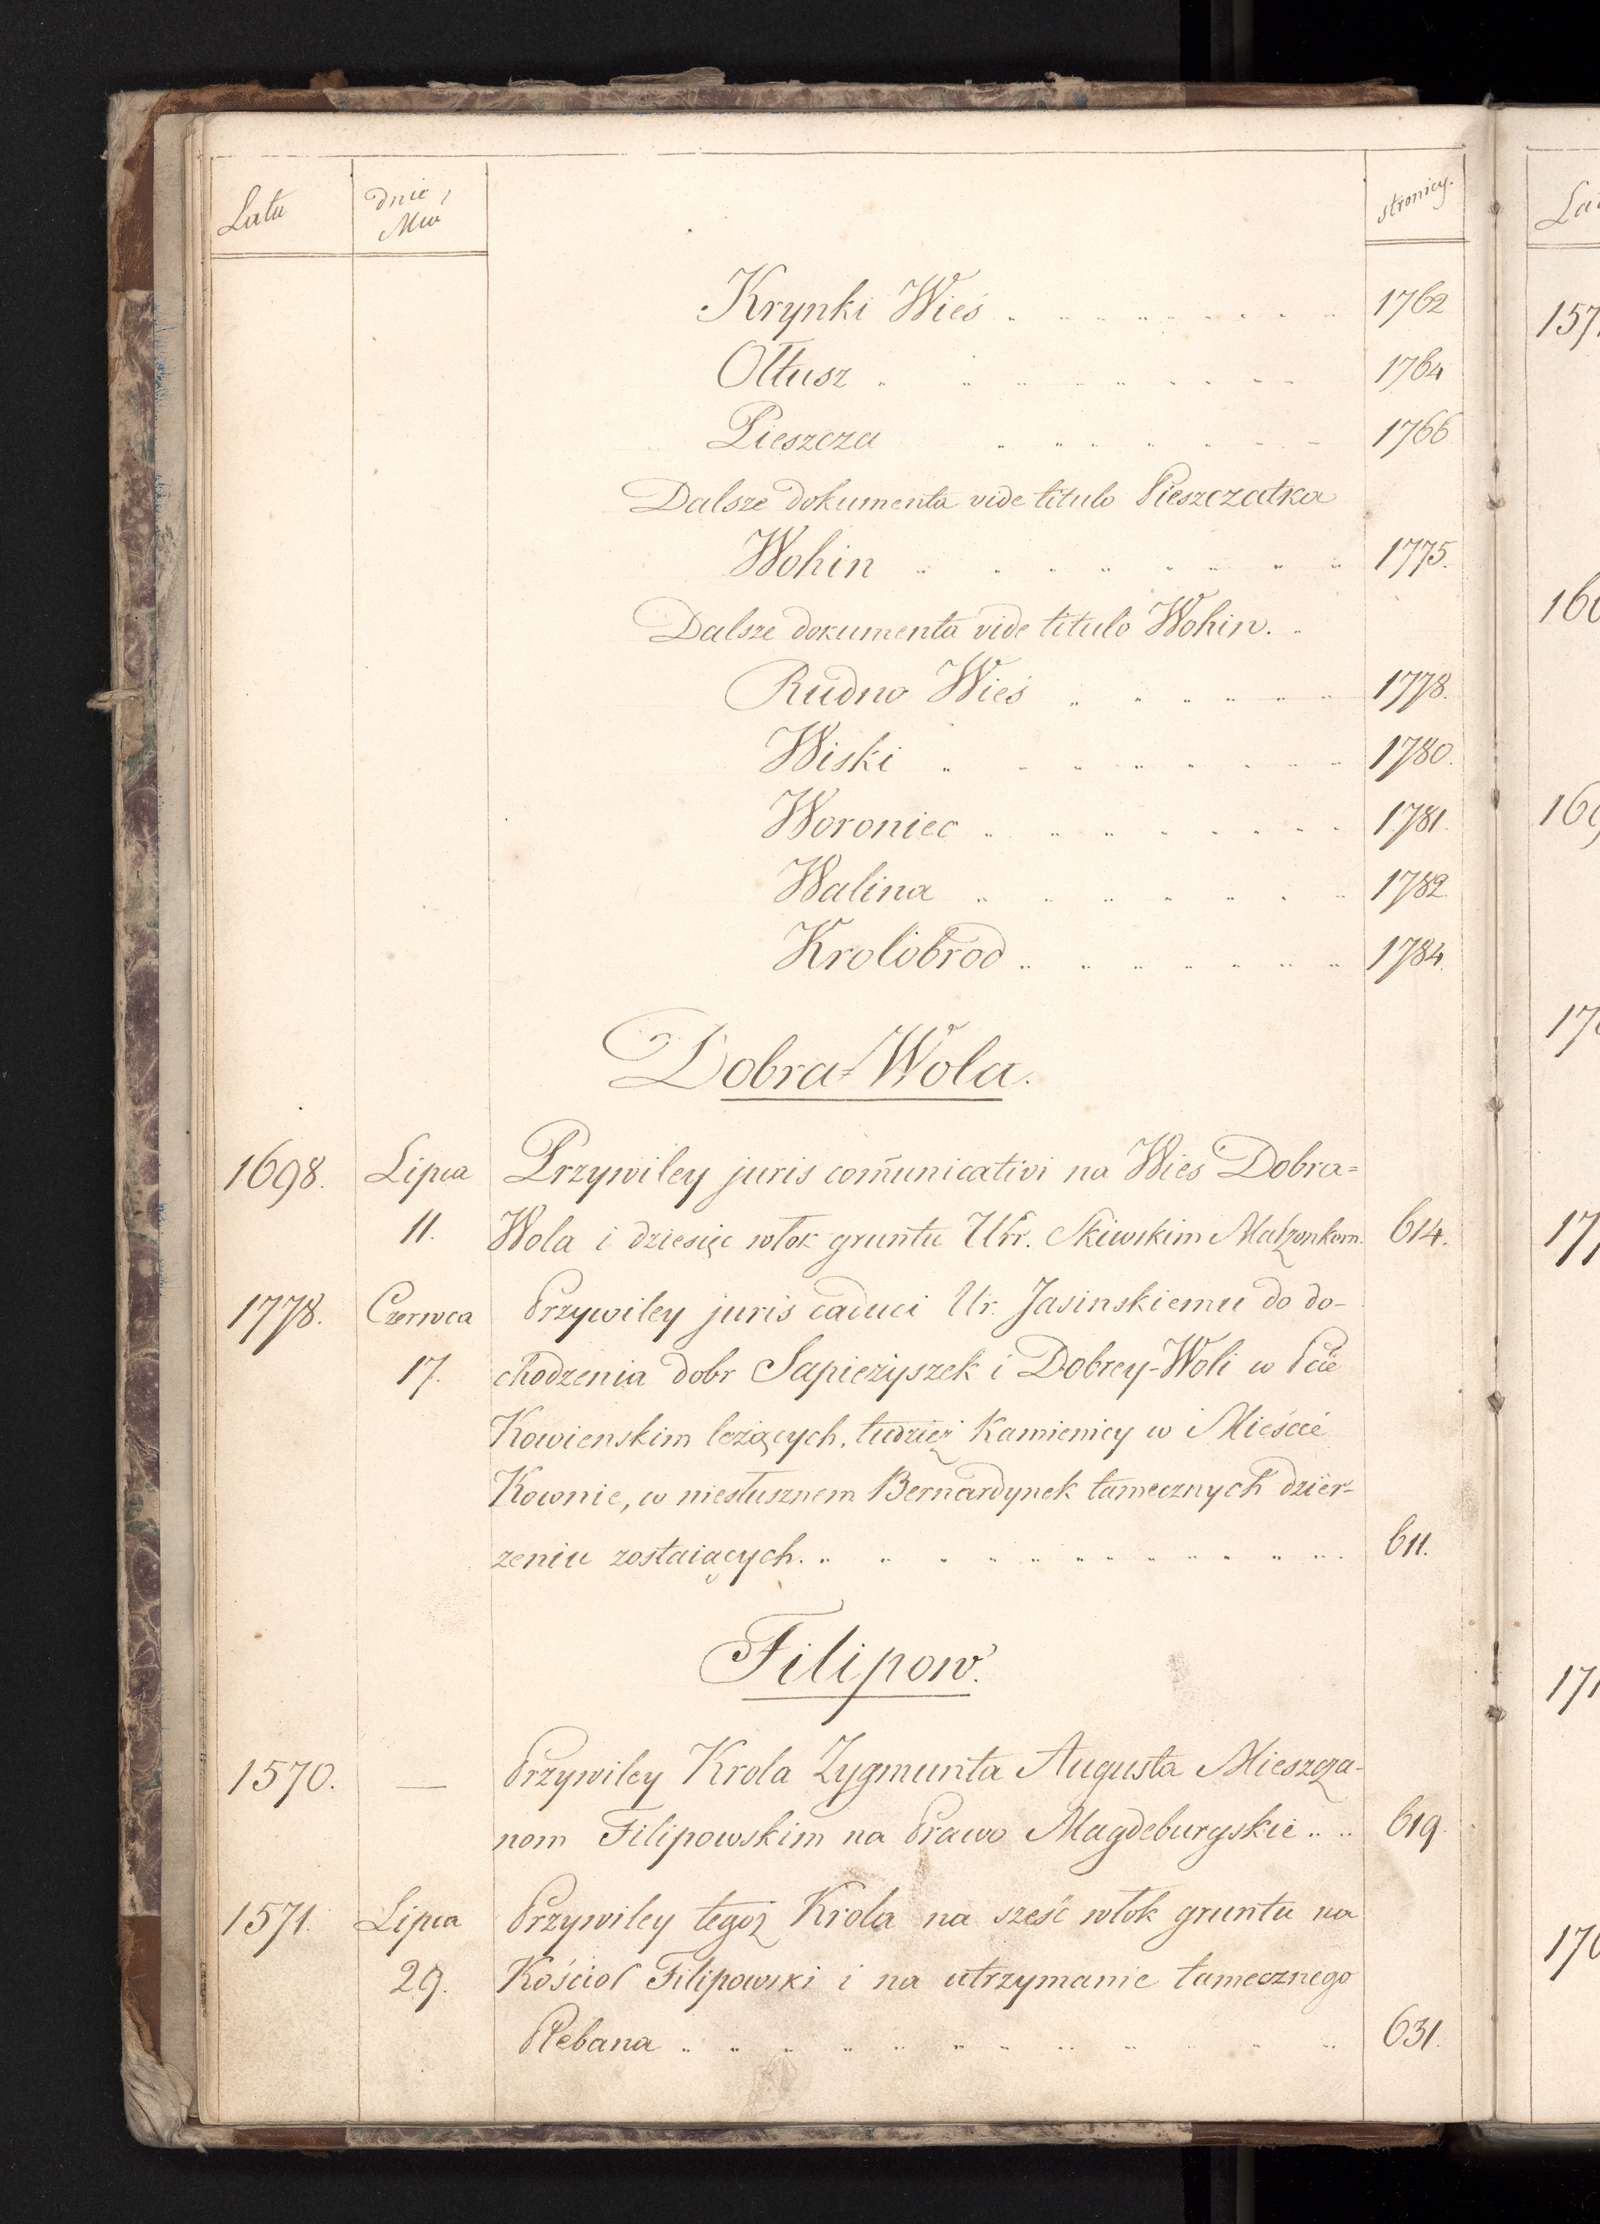 Lata dnie, Mca stronicy.
Krynki Wieś 1762
Ołtusz 1764
Pieszcza 1766
Dalsze dokumenta vide titulo Pieszczatka
Wohin 1775.
Dalsze dokumenta vide titulo Wohin.
Rudno Wieś 1778.
Wiski 1780.
Woroniec 1781.
Walina 1782.
Krolobrod 1784.
Dobra-Wola.
1698. Lipca Przywiley juris com̄unicativi na Wies Dobra=
11. Wola i dziesięc włok gruntu Urr. Skiwskim Małżonkom. 614.
1778. Czerwca Przywiley juris caduci Ur. Jasinskiemu do do-
17. chodzenia dobr Sapieżyszek i Dobrey-Woli w Pcie
Kowienskim leżących, tudzież Kamienicy w Mieście
Kownie, w niesłusznem Bernardynek tamecznych dzier-
zeniu zostaiących. 611.
Filipow.
1570. — Przywiley Krola Zygmunta Augusta Mieszcza-
nom Filipowskim na Prawo Magdeburgskie 619
1571. Lipca Przywiley tegoż Krola na sześć włok gruntu na
29. Kościoł Filipowski i na utrzymanie tamecznego
Plebana 631.